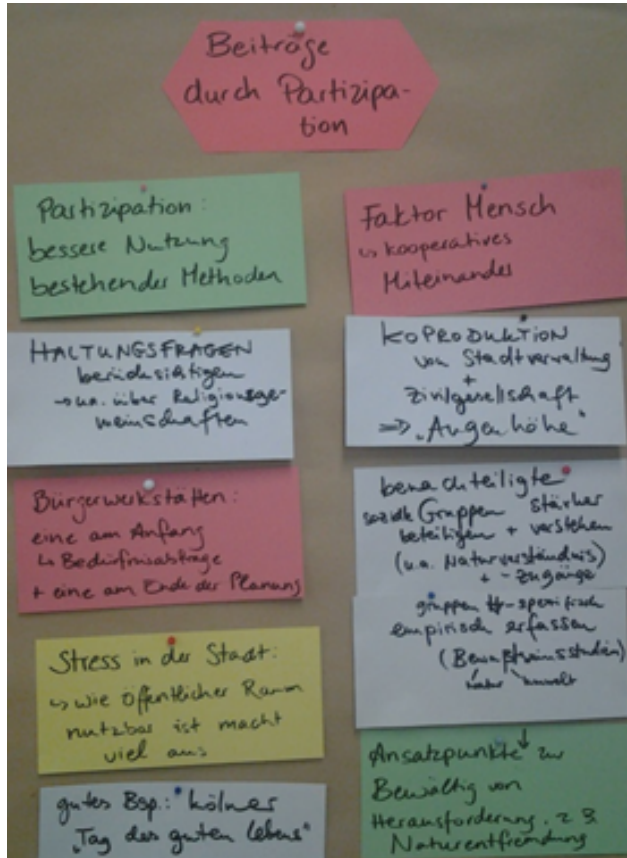 Beiträge
durch Partizipa-
tion
Partizipation:
bessere Nutzung
bestehender Methoden
HALTUNGSFRAGEN
berücksichtigen
→ u.a. über Religionsge-
meinschaften
Bürgerwerkstätten:
eine am Anfang
↳ Bedürfnisabfrage
+ eine am Ende der Planung
Stress in der Stadt:
↳ wie öffentlicher Raum
nutzbar ist macht
viel aus
gutes Bsp.: Kölner
"Tag des guten Lebens"
Faktor Mensch
↳ kooperatives
Miteinander
KOPRODUKTION
von Stadtverwaltung
+
Zivilgesellschaft
⇒ "Augenhöhe"
benachteiligte
soziale Gruppen stärker
beteiligen + verstehen
(u.a. Naturverständnis)
+ - zugänge
gruppen -spezifisch
empirisch erfassen
(Bewusstseinsstudien)
Natur Umwelt
Ansatzpunkte zur
Bewältig von
Herausforderung. z.B.
Naturentfremdung